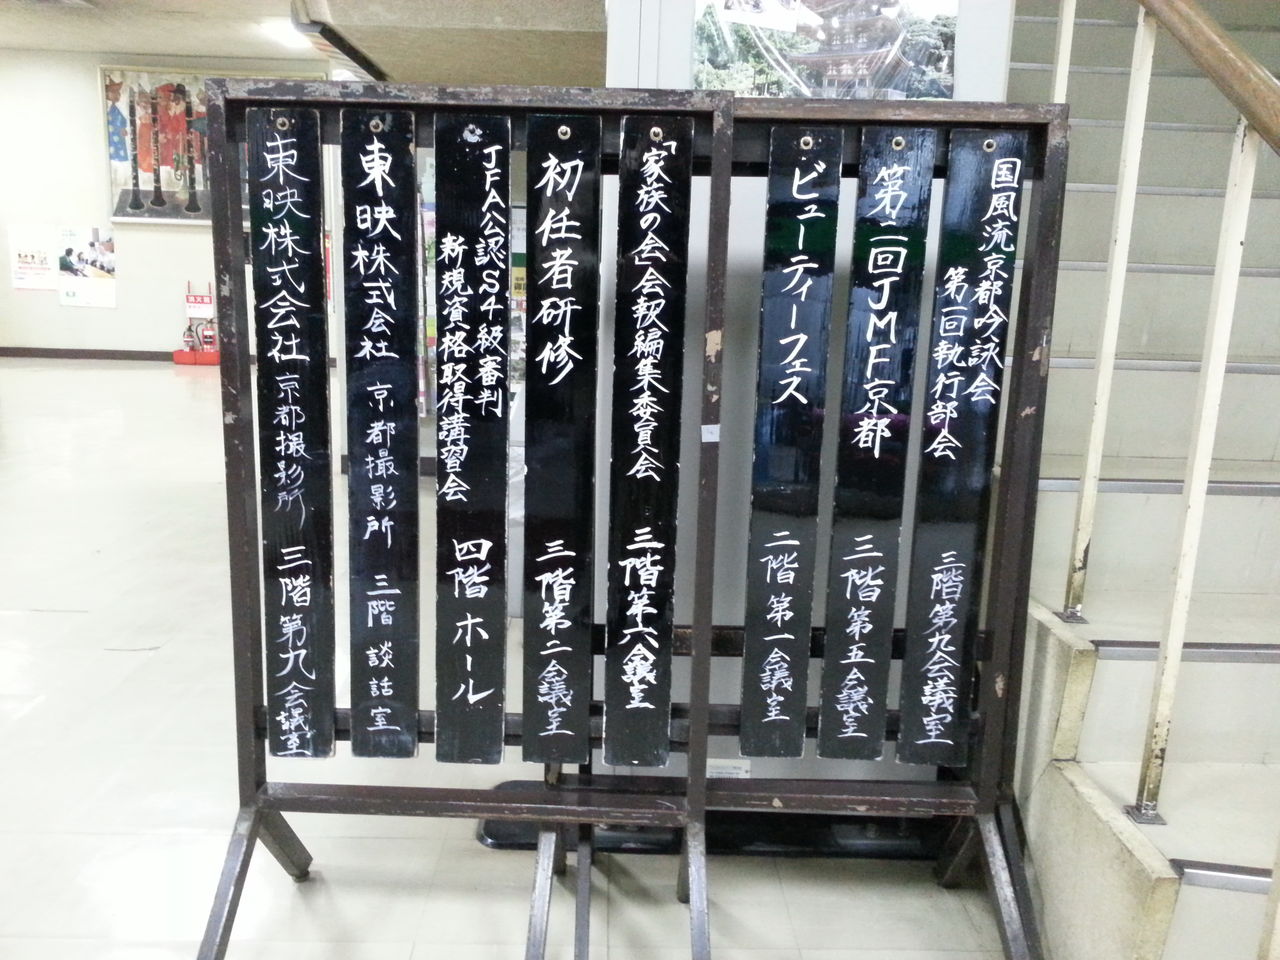 国風流京都吟詠会
第一回執行部会
三階第九会議室
第二回JMF京都
三階第五会議室
ビューティーフェス
二階第一会議室
「家族の会」会報編集委員会
三階第六会議室
初任者研修
三階第二会議室
JFA公認S4級審判
新規資格取得講習会
四階ホール
東映株式会社 京都撮影所
三階 談話室
東映株式会社 京都撮影所
三階第九会議室
消火器